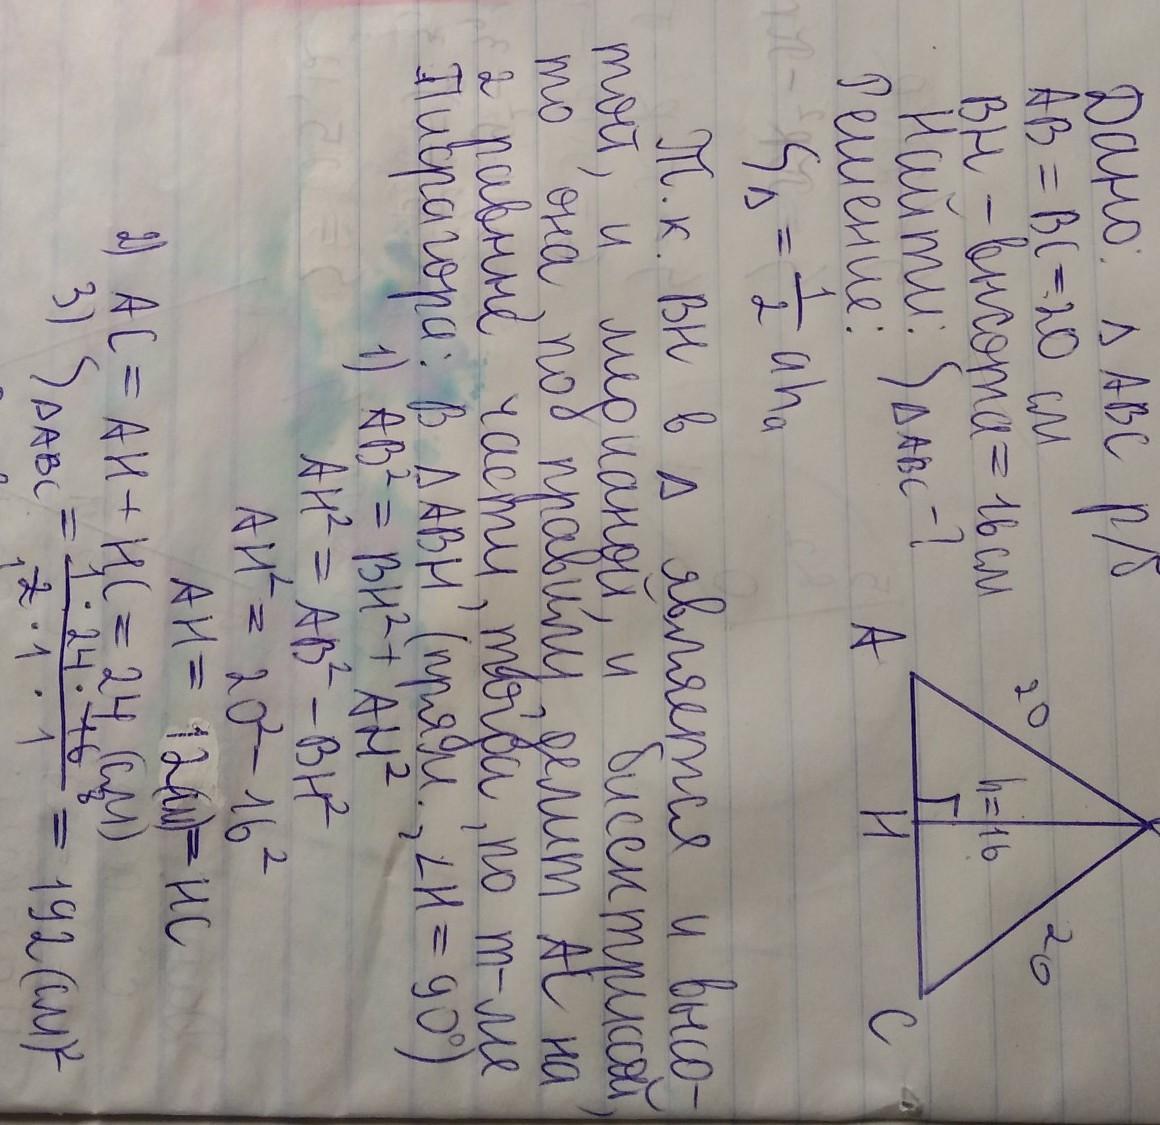 Дано: △ ABC р/б
AB = BC = 20 см
BH - высота = 16 см
Найти: S△ABC - ?
Решение:
A
20
h=16
H
20
C
S△ = 1/2 ah a
Т.к. BH в △ является и высо-
той, и медианой, и биссектрисой,
то она, по правилу, делит AC на
2 равные части, тогда, по т-ме
Пифагора: В △ABH, (прям., ∠H = 90°)
1) AB² = BH² + AH²
AH² = AB² - BH²
AH² = 20² - 16²
AH = 12(см) = HC
2) AC = AH + HC = 24 (см)
3) S△ABC = 1 · 24 · 16 8 / 1 2 · 1 · 1 = 192 (см)²